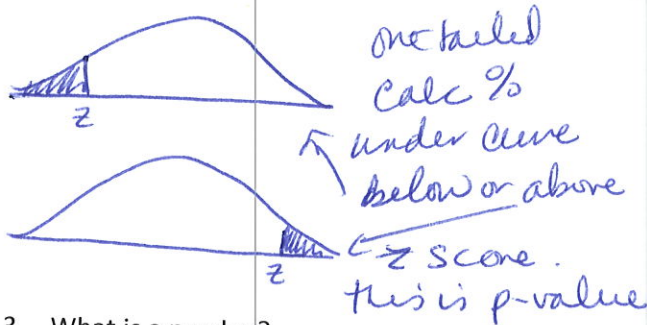 one tailed
Calc %
under curve
below or above
Z
Z score.
Z
this is p-value
3. What is a